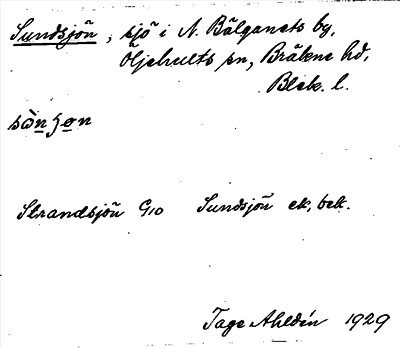 Sundsjön, sjö i N. Bälganets by,
Öljehults sn, Bräkne hd,
Blek. l.
sònʒon
Strandsjön G10 Sundsjön ek, bek.
Tage Ahldén 1929